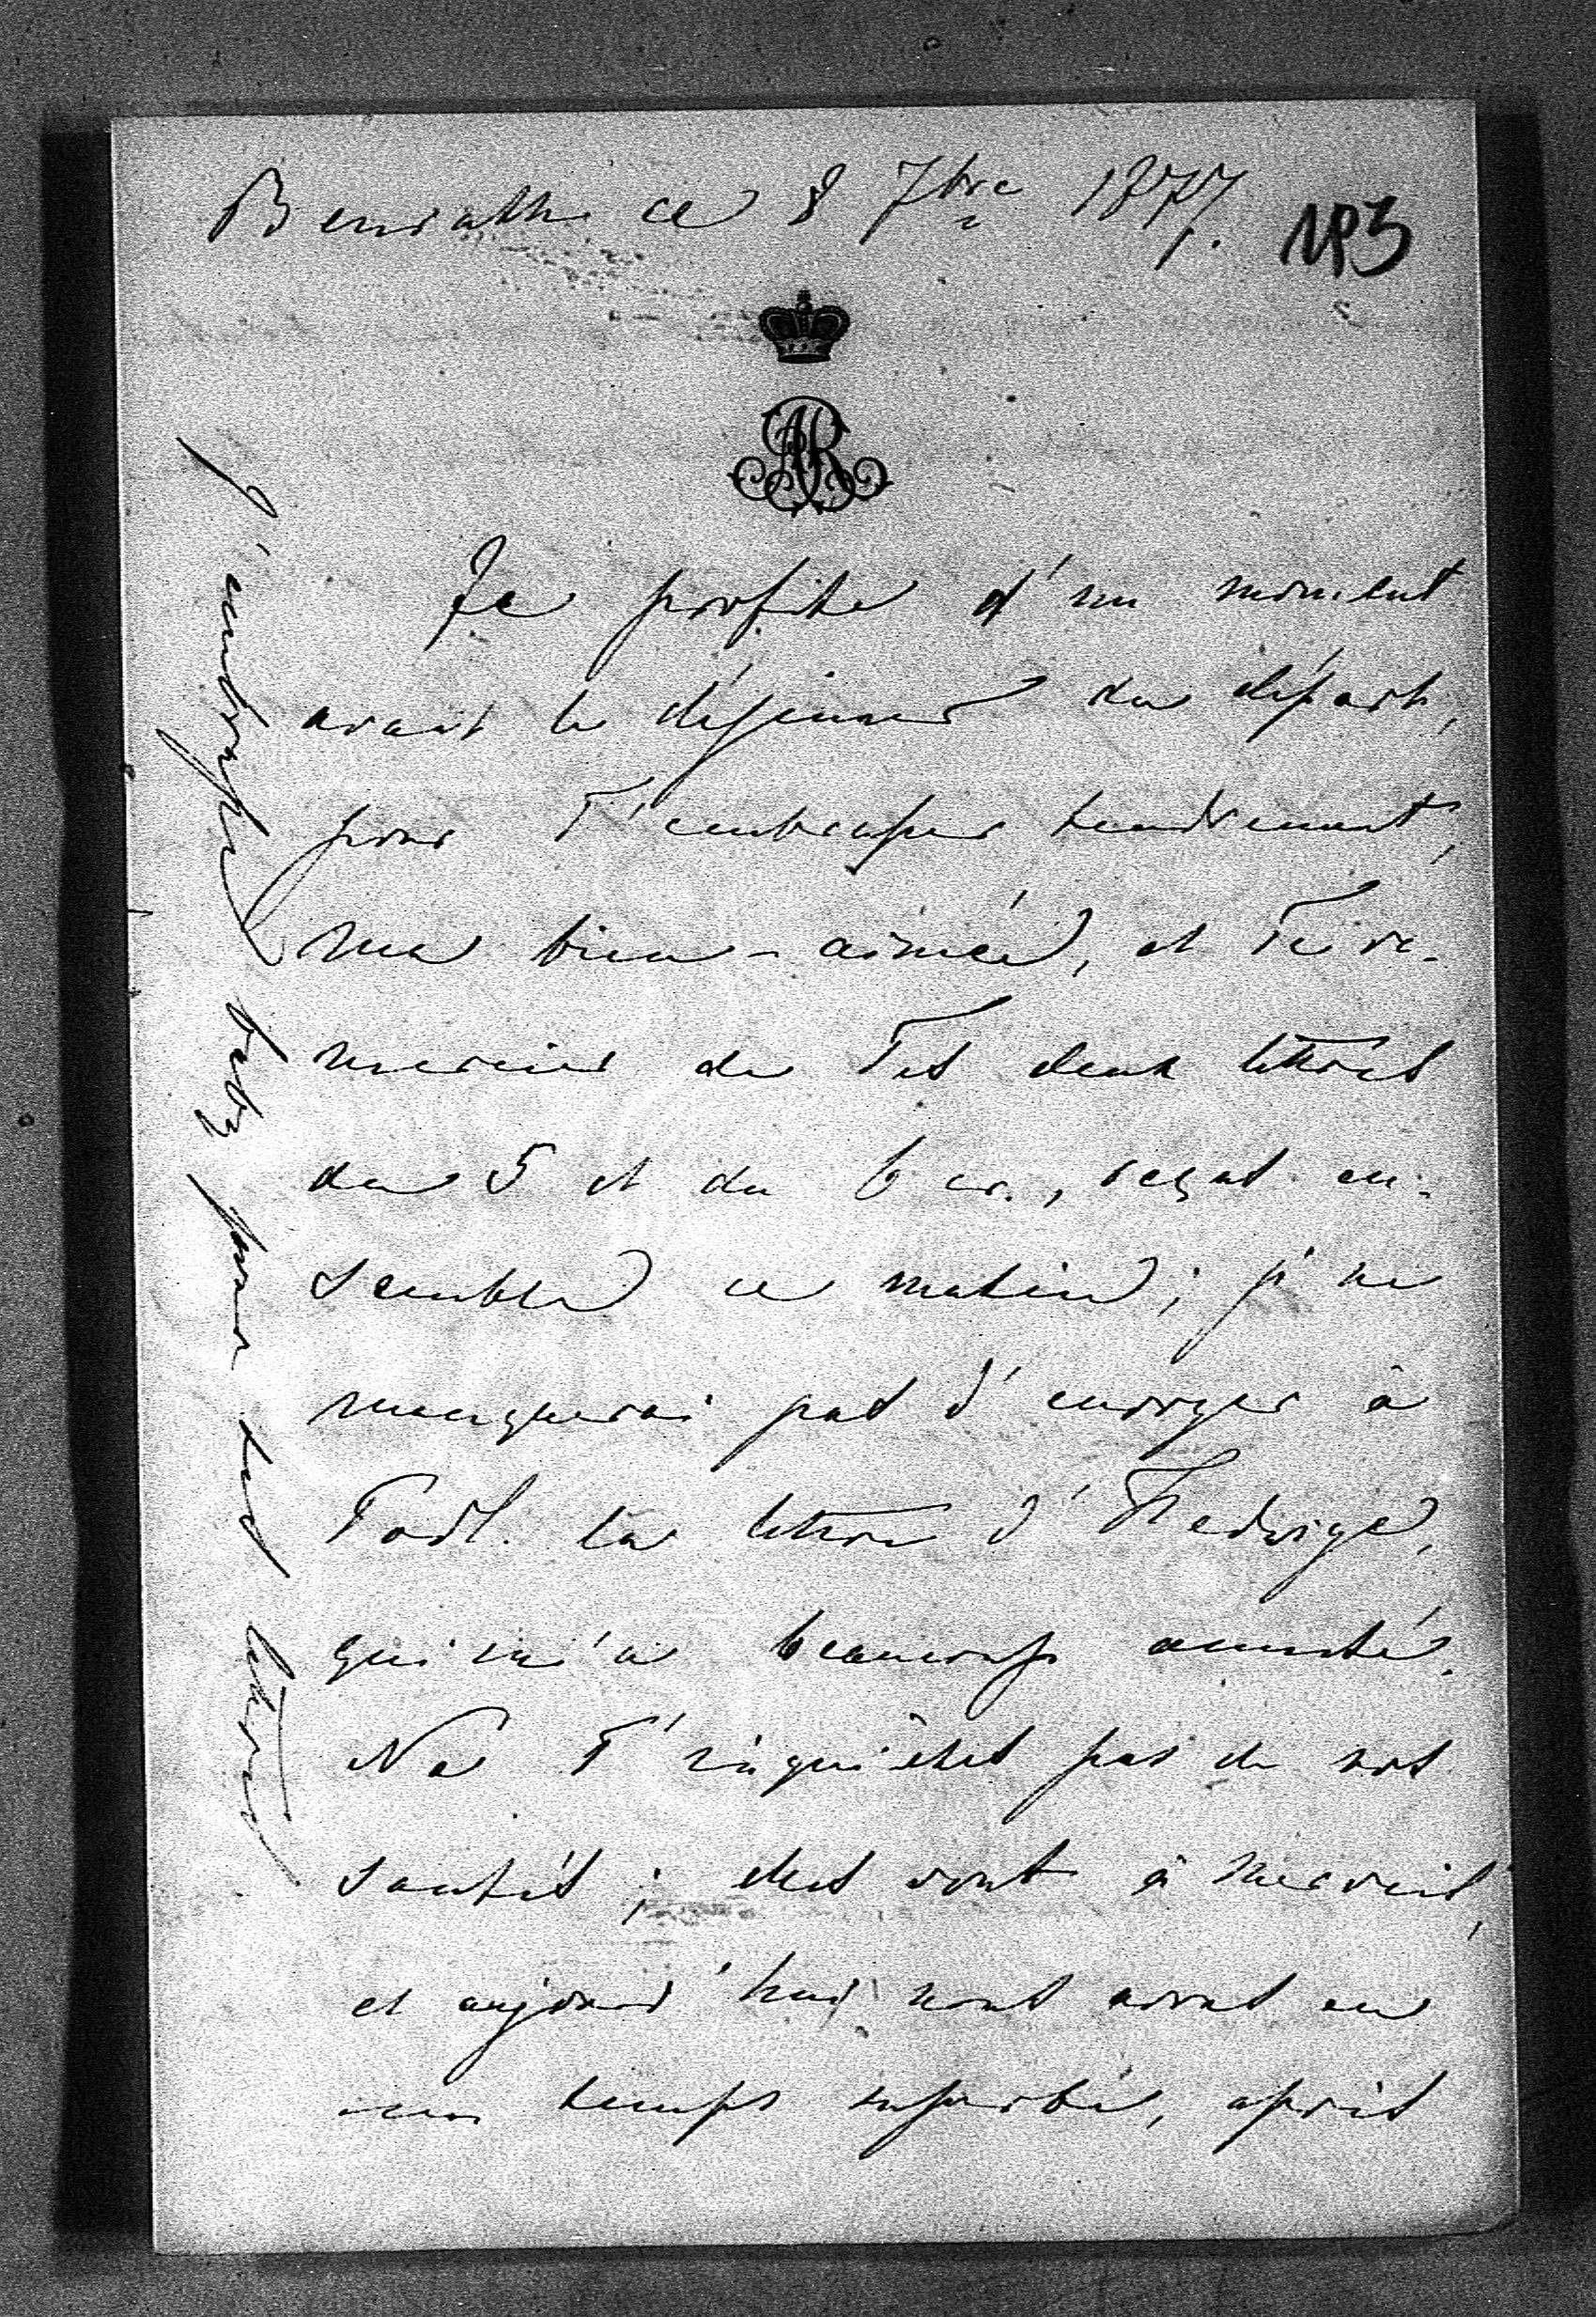 Benrath ce 8 7bre 1877.
193
AR
Je profite d'un moment
avant le déjeuner du départ,
pour T'embrasser tendrement,
ma bien-aimée, et Te re-
mercier de Tes deux lettres
du 5 et du 6 cr., reçus en-
semble ce matin; je ne
manquerai pas d'envoyer à
la lettre d'Hedwige,
qui m'a beaucoup amusée.
Ne T'inquiètes pas de nos
santés; elles vont à merveil,
et aujourd'hui nous avons eu
un temps superbe, après
J'embrasse baby pour ses lettres